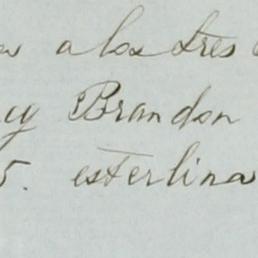 a los tres
y Brandon
5. esterlina